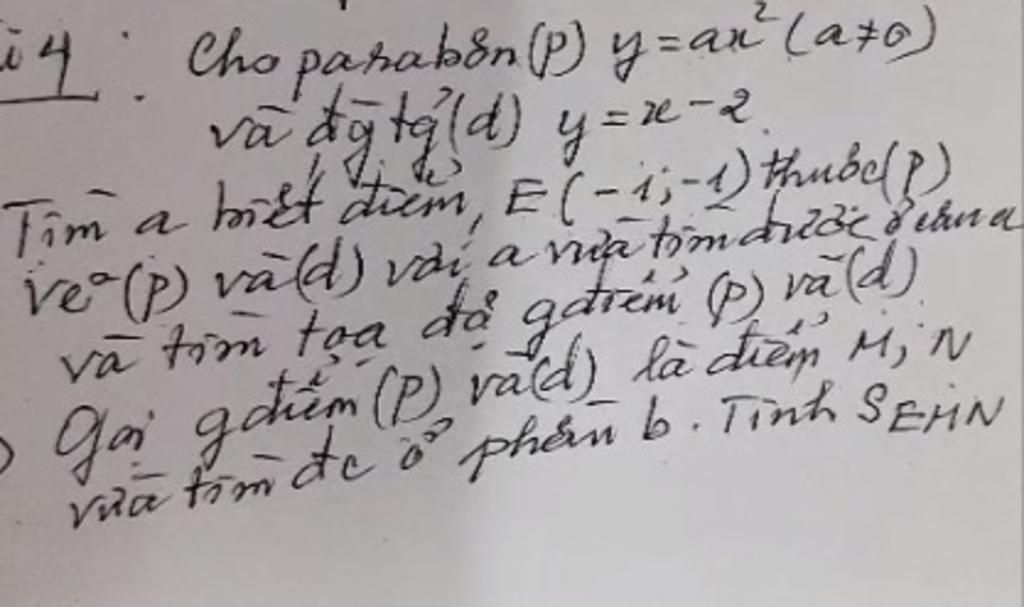 i 4 : Cho parabôn (P) y = ax² (a ≠ 0)
và đg tg (d) y = x - 2
Tìm a biết điểm, E (-1; -1) thuộc (P)
Vẽ (P) và (d) với a vừa tìm được ở câu a
và tìm toạ độ gđiểm (P) và (d)
) Gọi gđiểm (P) và (d) là điểm M, N
vừa tìm đc ở phần b. Tính S EMN